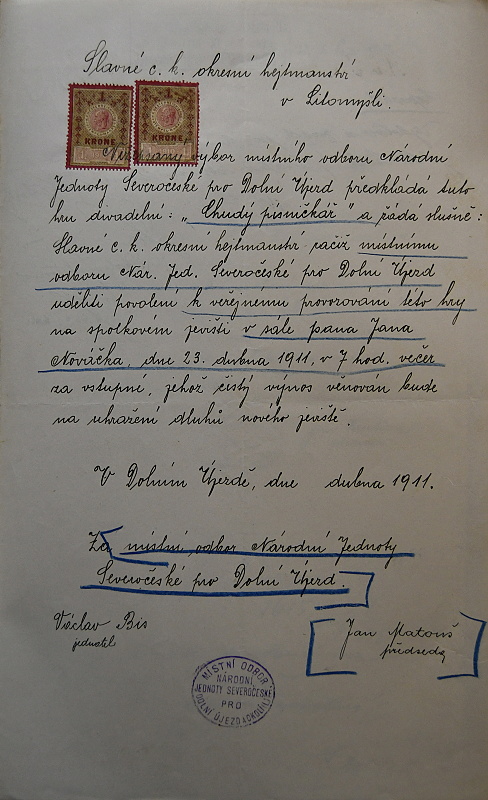 Slavné c. k. okresní hejtmanství
v Litomyšli.
1 1
KRONE KRONE
výbor místního odboru Národní
Jednoty Severočeské pro Dolní Újezd předkládá tuto
hru divadelní: „Chudý písničkář" a žádá slušně:
Slavné c. k. okresní hejtmanství račiž místnímu
odboru Nár. Jed. Severočeské pro Dolní Újezd
uděliti povolení k veřejnému provozování této hry
na spolkovém jevišti v sále pana Jana
Nováčka, dne 23. dubna 1911, v 7 hod. večer
za vstupné, jehož čistý výnos věnován bude
na uhražení dluhů nového jeviště.
V Dolním Újezdě, dne dubna 1911.
Za místní odbor Národní Jednoty
Severočeské pro Dolní Újezd.
Václav Bis
jednatel
Jan Matouš
předseda
MÍSTNÍ ODBOR
NÁRODNÍ
JEDNOTY SEVEROČESKÉ
PRO
DOLNÍ ÚJEZD A OKOLÍ